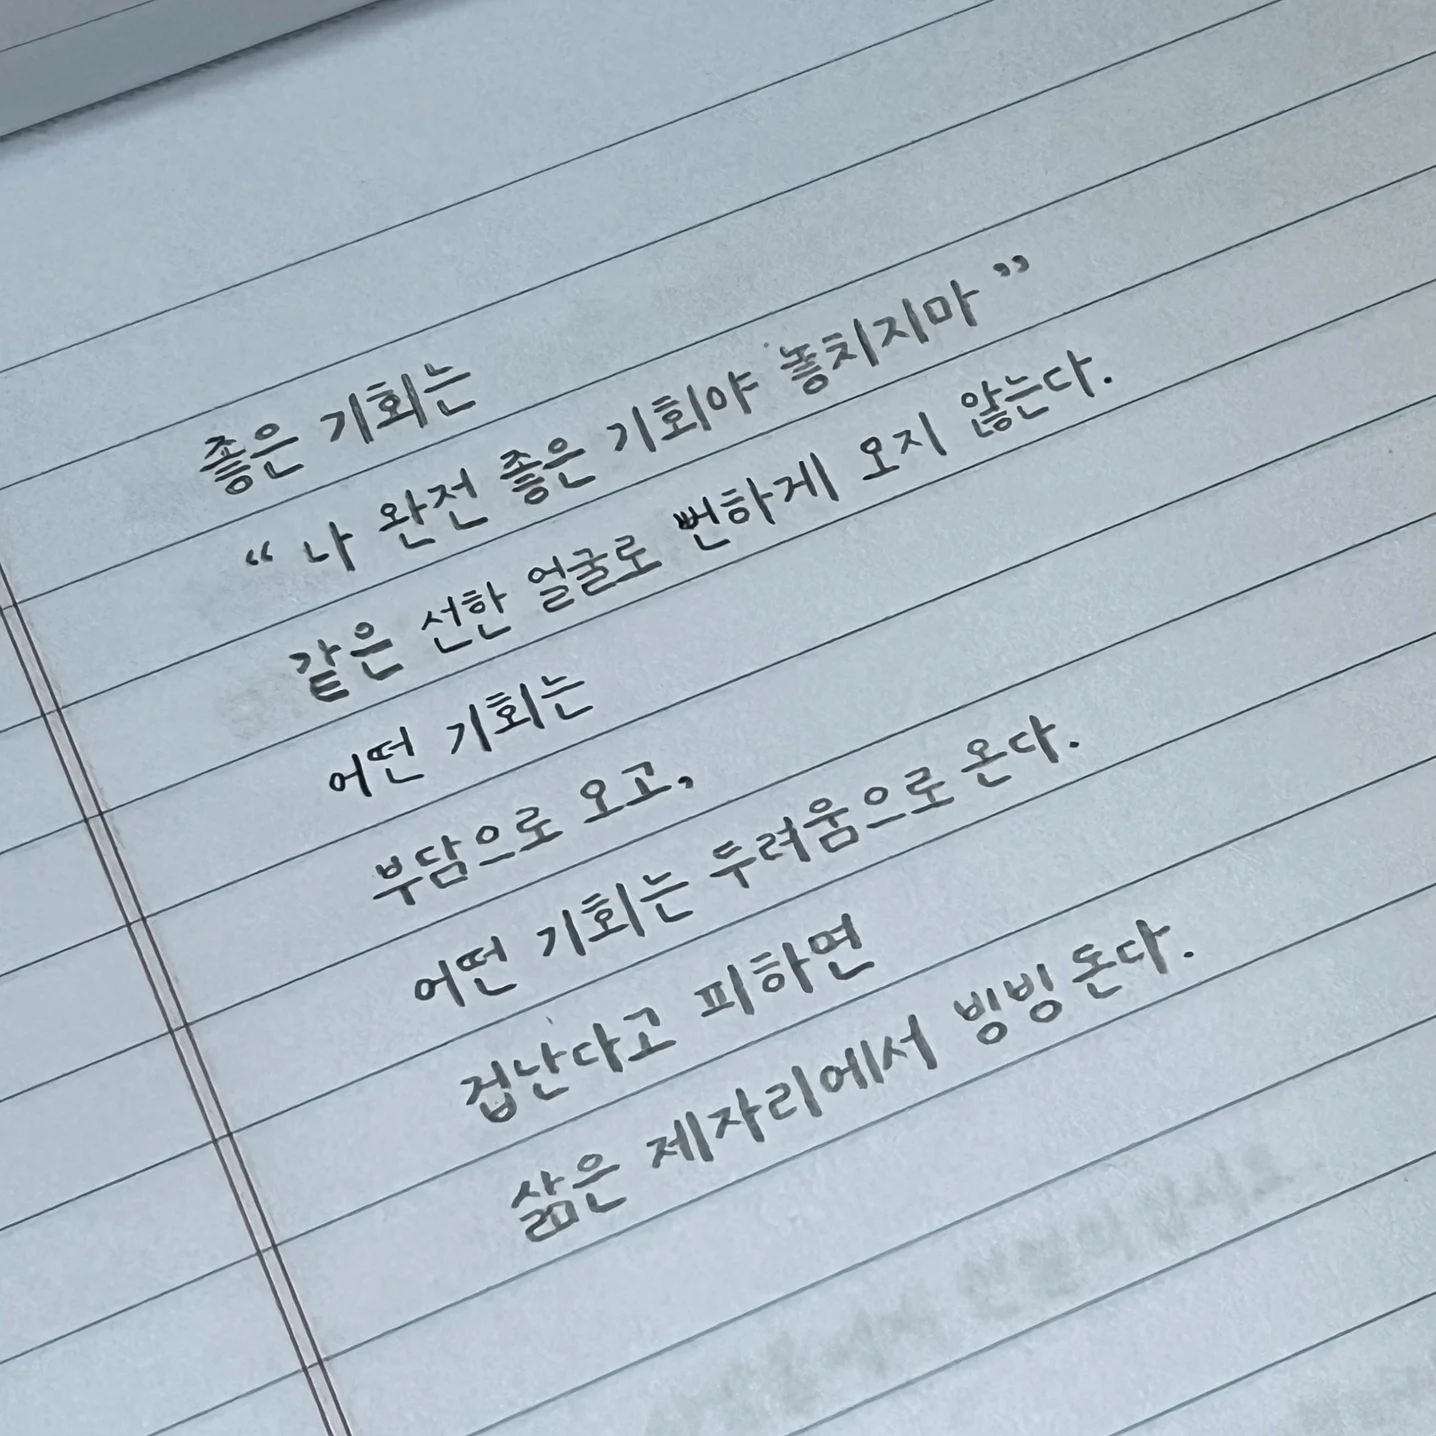 좋은 기회는
“ 나 완전 좋은 기회야 놓치지마 ”
같은 선한 얼굴로 뻔하게 오지 않는다.
어떤 기회는
부담으로 오고,
어떤 기회는 두려움으로 온다.
겁난다고 피하면
삶은 제자리에서 빙빙 돈다.